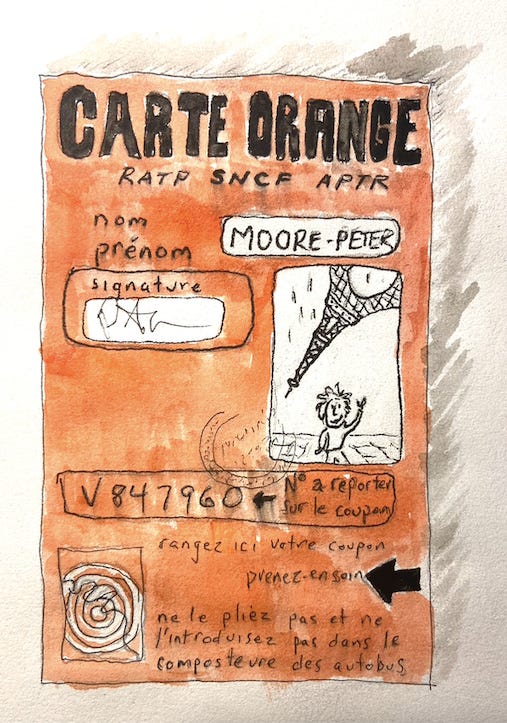 CARTE ORANGE
RATP SNCF APTR
nom
prénom
MOORE-PETER
signature
V847960
N° a reporter
sur le coupon
rangez ici votre coupon
prenez-en soin
ne le pliez pas et ne
l'introduisez pas dans le
composteure des autobus